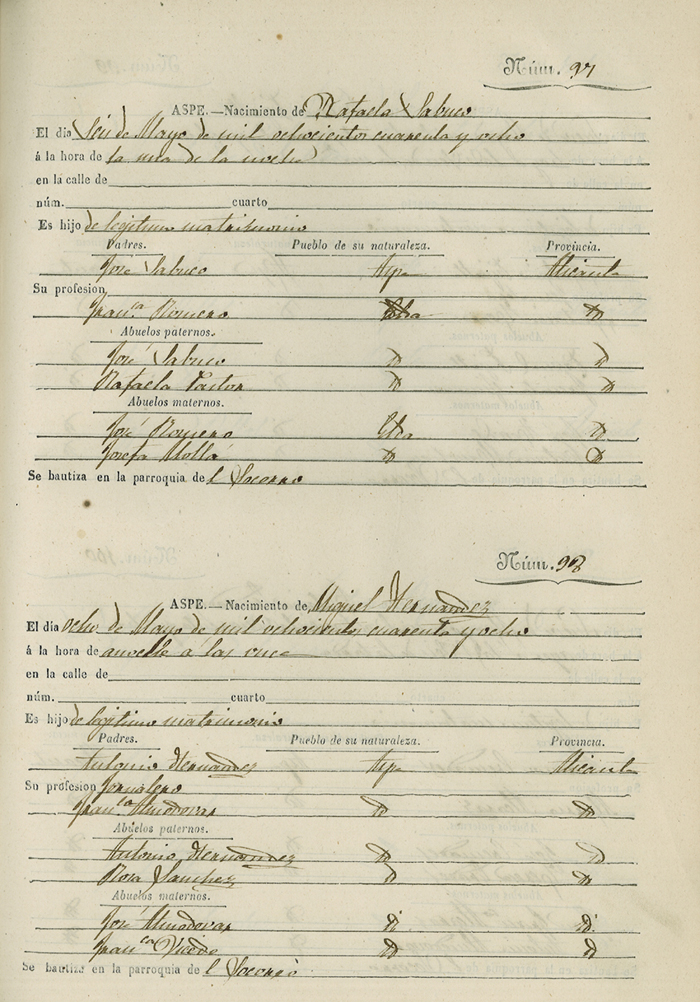 Núm. 97
ASPE.—Nacimiento de Rafaela Sabuco
El dia Seis de Mayo de mil ochocientos cuarenta y ocho
á la hora de la una de la noche
en la calle de
núm. cuarto
Es hijo de legitimo matrimonio
Padres. Pueblo de su naturaleza. Provincia.
José Sabuco Aspe Alicante
Su profesion
Fran.ca Romero D
Abuelos paternos.
José Sabuco D D
Rafaela Pastor D D
Abuelos maternos.
José Romero Elda D
Josefa Mollá D D
Se bautiza en la parroquia del Socorro
Núm. 98
ASPE.—Nacimiento de Miguel Hernandez
El dia ocho de Mayo de mil ochocientos cuarenta y ocho
á la hora de anoche a las once
en la calle de
núm. cuarto
Es hijo de legitimo matrimonio
Padres. Pueblo de su naturaleza. Provincia.
Antonio Hernandez Aspe Alicante
Su profesion Jornalero
Fran.ca Almodovar D D
Abuelos paternos.
Antonio Hernandez D D
Rosa Sanchez D D
Abuelos maternos.
José Almodovar D D
Fran.ca D D
Se bautiza en la parroquia del Socorro